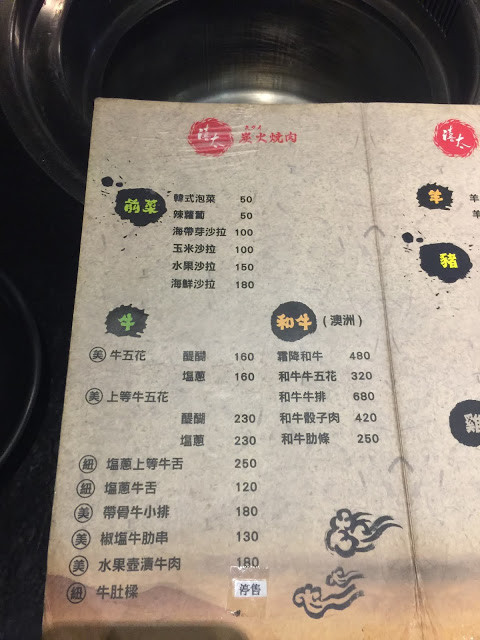 漢太
炭火燒肉
前菜
韓式泡菜 50
辣蘿蔔 50
海帶芽沙拉 100
玉米沙拉 100
水果沙拉 150
海鮮沙拉 180
牛
美 牛五花 醍醐 160
塩蔥 160
美 上等牛五花
醍醐 230
塩蔥 230
紐 塩蔥上等牛舌 250
紐 塩蔥牛舌 120
美 帶骨牛小排 180
美 椒塩牛肋串 130
美 水果壺漬牛肉 180
紐 牛肚樑 停售
和牛 (澳洲)
霜降和牛 480
和牛牛五花 320
和牛牛排 680
和牛骰子肉 420
和牛肋條 250
羊
羊
羊
豬
雞